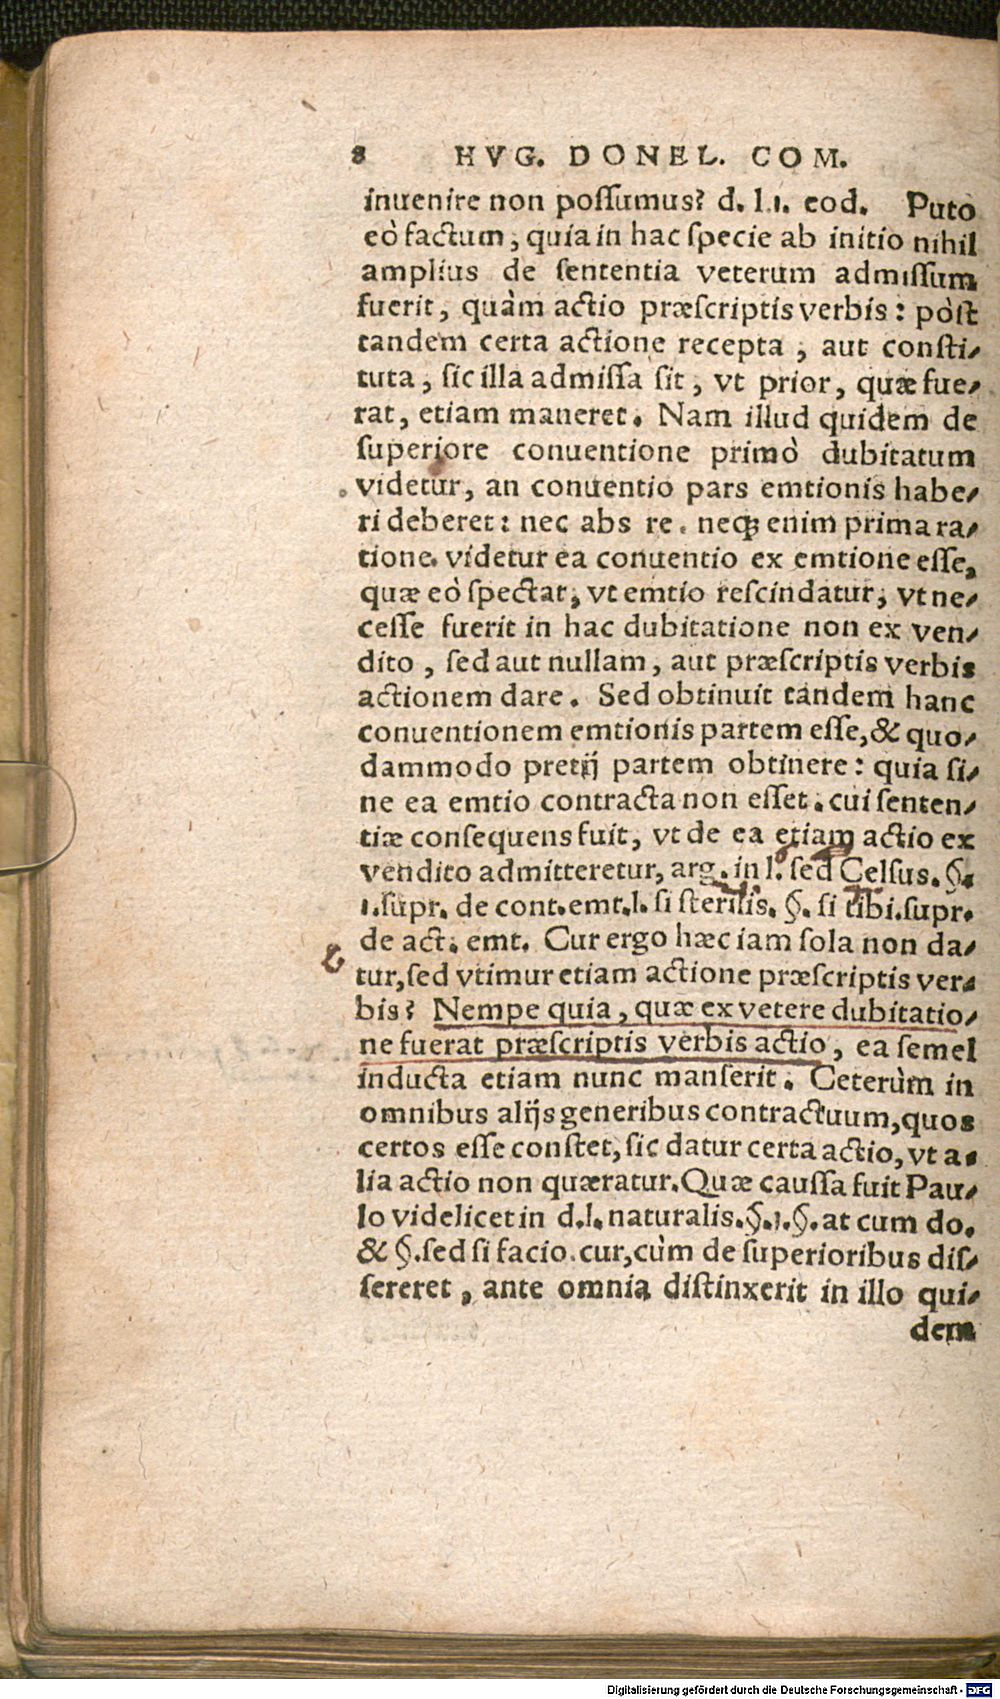 8 HVG. DONEL. COM.
inuenire non possumus? d. l.1. eod. Puto
eò factum, quia in hac specie ab initio nihil
amplius de sententia veterum admissum
fuerit, quàm actio præscriptis verbis: pòst
tandem certa actione recepta, aut consti-
tuta, sic illa admissa sit, vt prior, quæ fue-
rat, etiam maneret. Nam illud quidem de
superiore conuentione primò dubitatum
videtur, an conuentio pars emtionis habe-
ri deberet: nec abs re. neq; enim prima ra-
tione videtur ea conuentio ex emtione esse,
quæ eò spectat, vt emtio rescindatur, vt ne-
cesse fuerit in hac dubitatione non ex ven-
dito, sed aut nullam, aut præscriptis verbis
actionem dare. Sed obtinuit tandem hanc
conuentionem emtionis partem esse, & quo-
dammodo pretij partem obtinere: quia si-
ne ea emtio contracta non esset. cui senten-
tiæ consequens fuit, vt de ea etiam actio ex
vendito admitteretur, arg. in l. sed Celsus. §.
1. supr. de cont. emt. l. si sterilis. §. si tibi. supr.
de act. emt. Cur ergo hæc iam sola non da-
tur, sed vtimur etiam actione præscriptis ver-
bis? Nempe quia, quæ ex vetere dubitatio-
ne fuerat præscriptis verbis actio, ea semel
inducta etiam nunc manserit. Ceterùm in
omnibus alijs generibus contractuum, quos
certos esse constet, sic datur certa actio, vt a-
lia actio non quæratur. Quæ caussa fuit Pau-
lo videlicet in d. l. naturalis. §. 1. §. at cum do.
& §. sed si facio. cur, cùm de superioribus dis-
sereret, ante omnia distinxerit in illo qui-
dem
Digitalisierung gefördert durch die Deutsche Forschungsgemeinschaft - DFG